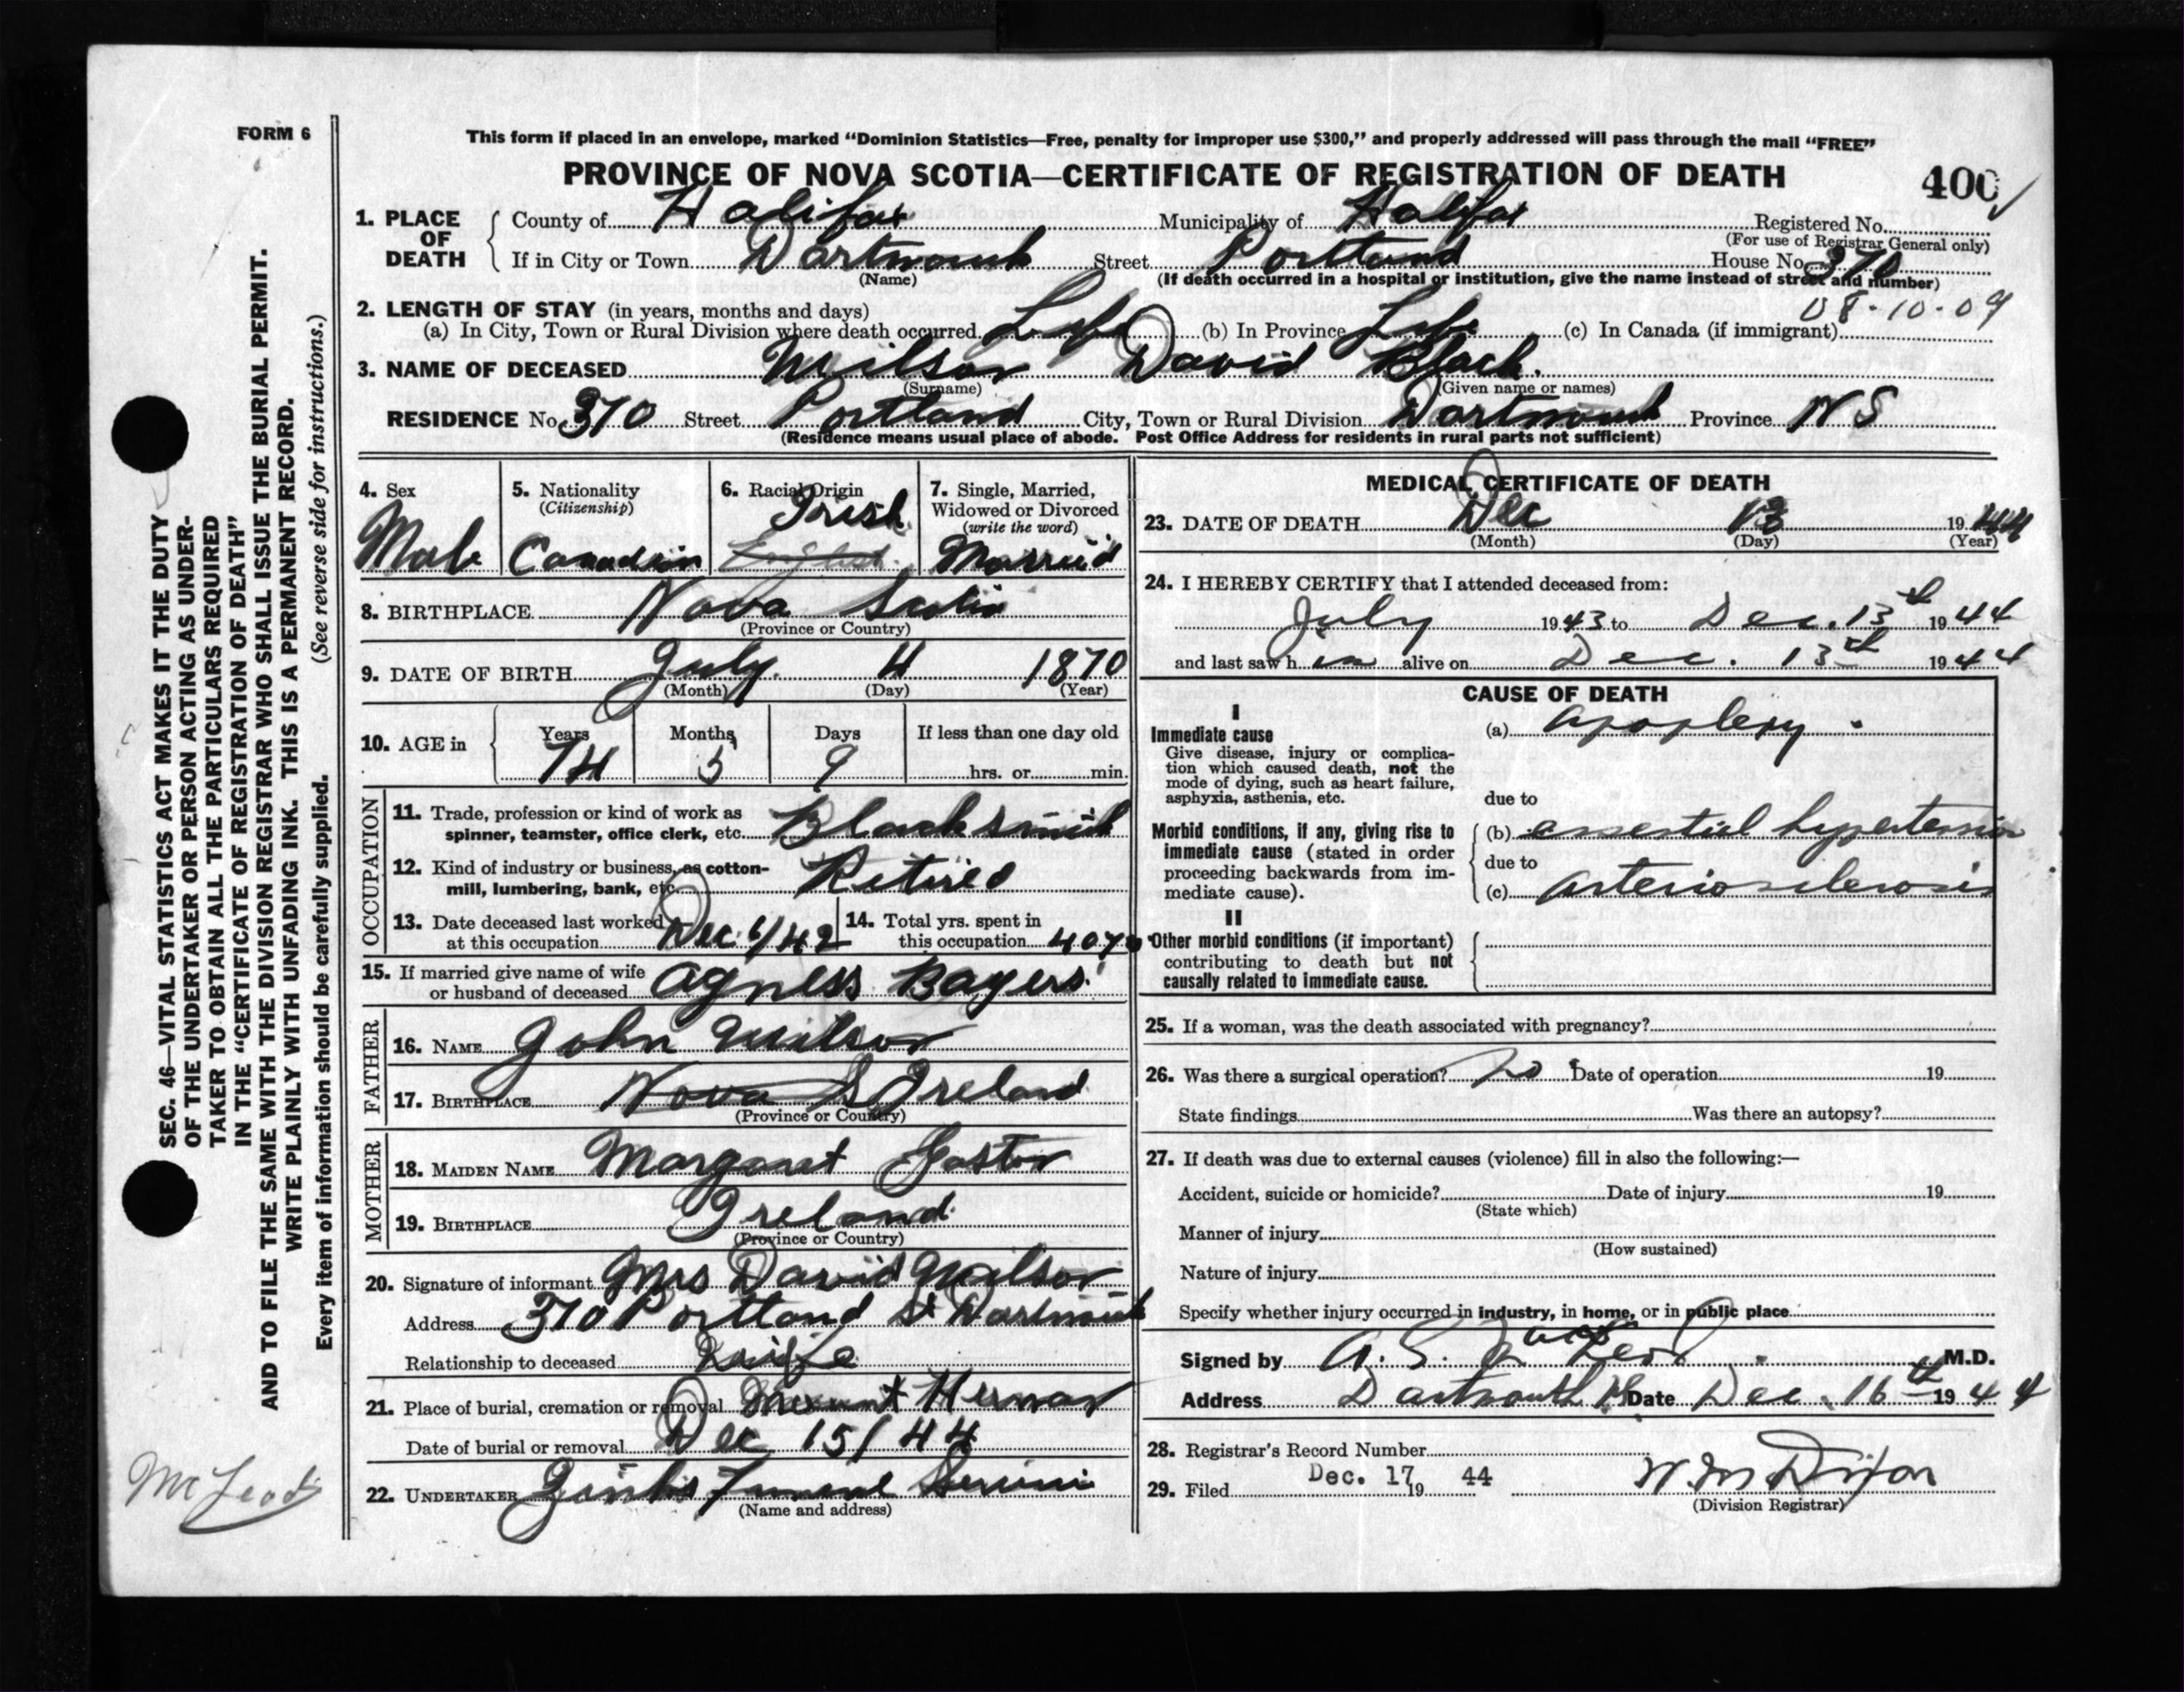 FORM 6
This form if placed in an envelope, marked “Dominion Statistics—Free, penalty for improper use $300,” and properly addressed will pass through the mail “FREE”
PROVINCE OF NOVA SCOTIA—CERTIFICATE OF REGISTRATION OF DEATH
400
1. PLACE OF DEATH
County of Halifax Municipality of Halifax Registered No.
(For use of Registrar General only)
If in City or Town Dartmouth Street Portland House No. 370
(Name) (If death occurred in a hospital or institution, give the name instead of street and number)
2. LENGTH OF STAY (in years, months and days) 08-10-09
(a) In City, Town or Rural Division where death occurred Life (b) In Province Life (c) In Canada (if immigrant)
3. NAME OF DECEASED David Black
(Surname) (Given name or names)
RESIDENCE No. 370 Street Portland City, Town or Rural Division Dartmouth Province N S
(Residence means usual place of abode. Post Office Address for residents in rural parts not sufficient)
4. Sex
Male
5. Nationality
(Citizenship)
Canadian
6. Racial Origin
Irish
English
7. Single, Married,
Widowed or Divorced
(write the word)
Married
8. BIRTHPLACE Nova Scotia
(Province or Country)
9. DATE OF BIRTH July 4 1870
(Month) (Day) (Year)
10. AGE in
Years Months Days If less than one day old
74 5 9 hrs. or min.
OCCUPATION
11. Trade, profession or kind of work as
spinner, teamster, office clerk, etc. Blacksmith
12. Kind of industry or business, as cotton-
mill, lumbering, bank, etc. Retired
13. Date deceased last worked
at this occupation Dec 6/42
14. Total yrs. spent in
this occupation 40 y
15. If married give name of wife
or husband of deceased Agness Bayers
FATHER
16. NAME John
17. BIRTHPLACE Nova S Ireland
(Province or Country)
MOTHER
18. MAIDEN NAME Margaret
19. BIRTHPLACE Ireland
(Province or Country)
20. Signature of informant Mrs David
Address 370 Portland St Dartmouth
Relationship to deceased Wife
21. Place of burial, cremation or removal Mount Herman
Date of burial or removal Dec 15/44
22. UNDERTAKER
(Name and address)
MEDICAL CERTIFICATE OF DEATH
23. DATE OF DEATH Dec 13 1944
(Month) (Day) (Year)
24. I HEREBY CERTIFY that I attended deceased from:
July 1943 to Dec. 13th 1944
and last saw him alive on Dec. 13th 1944
CAUSE OF DEATH
I
Immediate cause
Give disease, injury or complica-
tion which caused death, not the
mode of dying, such as heart failure,
asphyxia, asthenia, etc.
(a) apoplexy.
due to
Morbid conditions, if any, giving rise to
immediate cause (stated in order
proceeding backwards from im-
mediate cause).
(b) essential hypertension
due to
(c) arteriosclerosis
II
Other morbid conditions (if important)
contributing to death but not
causally related to immediate cause.
25. If a woman, was the death associated with pregnancy?
26. Was there a surgical operation? no Date of operation 19
State findings Was there an autopsy?
27. If death was due to external causes (violence) fill in also the following:—
Accident, suicide or homicide? Date of injury 19
(State which)
Manner of injury
(How sustained)
Nature of injury
Specify whether injury occurred in industry, in home, or in public place
Signed by A. S. M.D.
Address Dartmouth Date Dec. 16th 1944
28. Registrar's Record Number
29. Filed Dec. 17 19 44 W. M Dixon
(Division Registrar)
SEC. 46—VITAL STATISTICS ACT MAKES IT THE DUTY
OF THE UNDERTAKER OR PERSON ACTING AS UNDER-
TAKER TO OBTAIN ALL THE PARTICULARS REQUIRED
IN THE “CERTIFICATE OF REGISTRATION OF DEATH”
AND TO FILE THE SAME WITH THE DIVISION REGISTRAR WHO SHALL ISSUE THE BURIAL PERMIT.
WRITE PLAINLY WITH UNFADING INK. THIS IS A PERMANENT RECORD.
Every item of information should be carefully supplied. (See reverse side for instructions.)